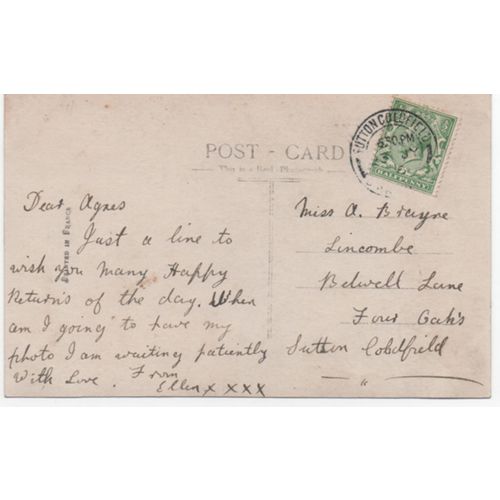 POST - CARD
This is a Real Photograph
PRINTED IN FRANCE
SUTTON COLDFIELD
8.30 PM
HALFPENNY
Dear Agnes
Just a line to
wish you Many Happy
Returns of the day. When
am I going to have my
photo I am waiting patiently
With Love. From
Ellen x x x x
Miss A. Brayne
Lincombe
Belwell Lane
Four Oaks
Sutton Coldfield